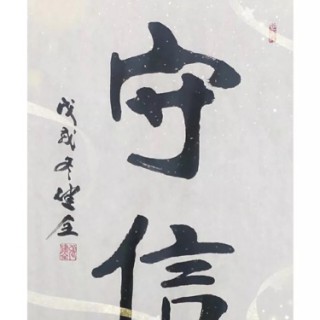 守信
戊戌冬健全